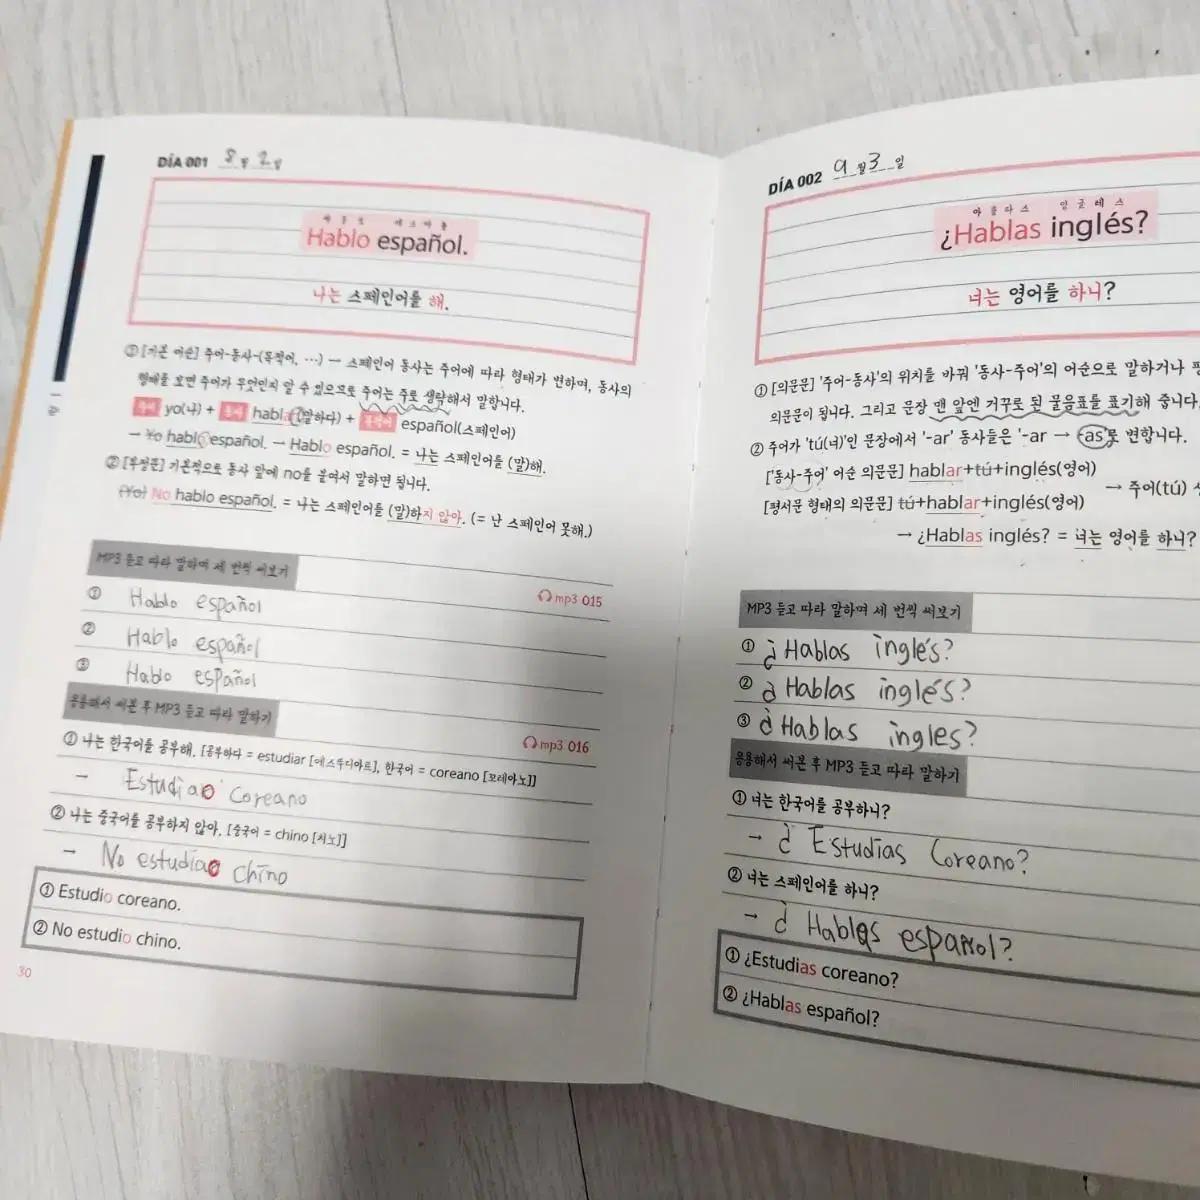 DÍA 001 8월 2일
Hablo español.
나는 스페인어를 해.
① [기본 어순] 주어-동사-(목적어, …) → 스페인어 동사는 주어에 따라 형태가 변하며, 동사의
형태를 보면 주어가 무엇인지 알 수 있으므로 주어는 주로 생략해서 말합니다.
주어 yo(나) + 동사 hablar(말하다) + 목적어 español(스페인어)
→ Yo hablo español. → Hablo español. = 나는 스페인어를 (말)해.
② [부정문] 기본적으로 동사 앞에 no를 붙여서 말하면 됩니다.
(Yo) No hablo español. = 나는 스페인어를 (말)하지 않아. (= 난 스페인어 못해.)
MP3 듣고 따라 말하며 세 번씩 써보기
mp3 015
① Hablo español
② Hablo español
③ Hablo español
응용해서 써본 후 MP3 듣고 따라 말하기
mp3 016
① 나는 한국어를 공부해. [공부하다 = estudiar [에스뚜디아르], 한국어 = coreano [꼬레아노]]
→ Estudiao Coreano
② 나는 중국어를 공부하지 않아. [중국어 = chino [치노]]
→ No estudiao chino
① Estudio coreano.
② No estudio chino.
30
DÍA 002 9월 3일
아블라스 잉글레스
¿Hablas inglés?
너는 영어를 하니?
① [의문문] '주어-동사'의 위치를 바꿔 '동사-주어'의 어순으로 말하거나
의문문이 됩니다. 그리고 문장 맨 앞엔 거꾸로 된 물음표를 표기해 줍니다.
② 주어가 'tú(너)'인 문장에서 '-ar' 동사들은 '-ar → -as'로 변합니다.
['동사-주어' 어순 의문문] hablar+tú+inglés(영어)
→ 주어(tú)
[평서문 형태의 의문문] tú+hablar+inglés(영어)
→ ¿Hablas inglés? = 너는 영어를 하니?
MP3 듣고 따라 말하며 세 번씩 써보기
① ¿Hablas inglés?
② ¿Hablas inglés?
③ ¿Hablas ingles?
응용해서 써본 후 MP3 듣고 따라 말하기
① 너는 한국어를 공부하니?
→ ¿ Estudias Coreano?
② 너는 스페인어를 하니?
→ ¿ Hablas español?
① ¿Estudias coreano?
② ¿Hablas español?